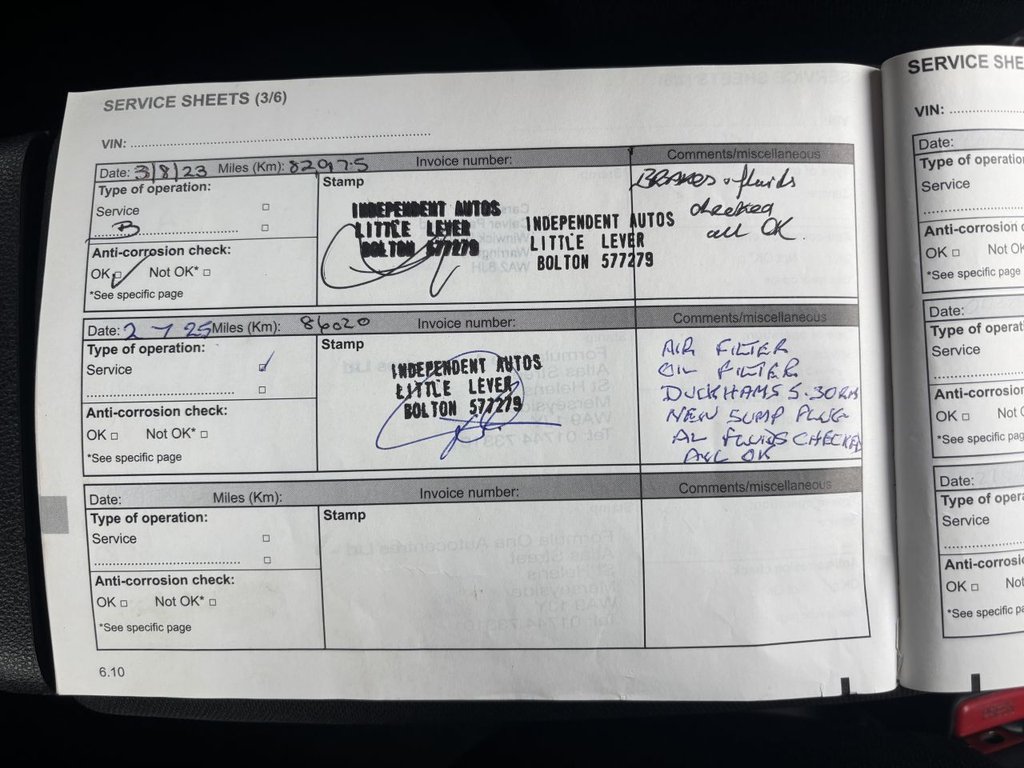 SERVICE SHEETS (3/6)
VIN:
Date: 3/8/23 Miles (Km): 82975 Invoice number: Comments/miscellaneous
Type of operation:
Service
B
Anti-corrosion check:
OK Not OK*
*See specific page
Stamp
INDEPENDENT AUTOS
LITTLE LEVER
BOLTON 577279
INDEPENDENT AUTOS
LITTLE LEVER
BOLTON 577279
BRAKES + fluids
checked
all OK.
Date: 2 7 25 Miles (Km): 86020 Invoice number: Comments/miscellaneous
Type of operation:
Service
Anti-corrosion check:
OK Not OK*
*See specific page
Stamp
INDEPENDENT AUTOS
LITTLE LEVER
BOLTON 577279
AIR FILTER
OIL FILTER
DUCKHAMS 5.30
NEW SUMP PLUG
AL FLUIDS CHECKED
ALL OK
Date: Miles (Km): Invoice number: Comments/miscellaneous
Type of operation:
Service
Anti-corrosion check:
OK Not OK*
*See specific page
Stamp
6.10
SERVICE SHE
VIN:
Date:
Type of operation
Service
Anti-corrosion c
OK Not OK
*See specific page
Date:
Type of operati
Service
Anti-corrosion
OK Not O
*See specific pa
Date:
Type of opera
Service
Anti-corrosio
OK No
*See specific pa